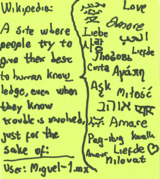 Wikipedia:
A site where
people try to
give their best
to human know
ledge, even when
they know
trouble is involved,
just for the
sake of:
Love
Amore
Liebe
Liefde
Любовь
Cinta Αγάπη
Aşk Miłość
Amare
Pag-ibig
Amor Liefde
Milovat